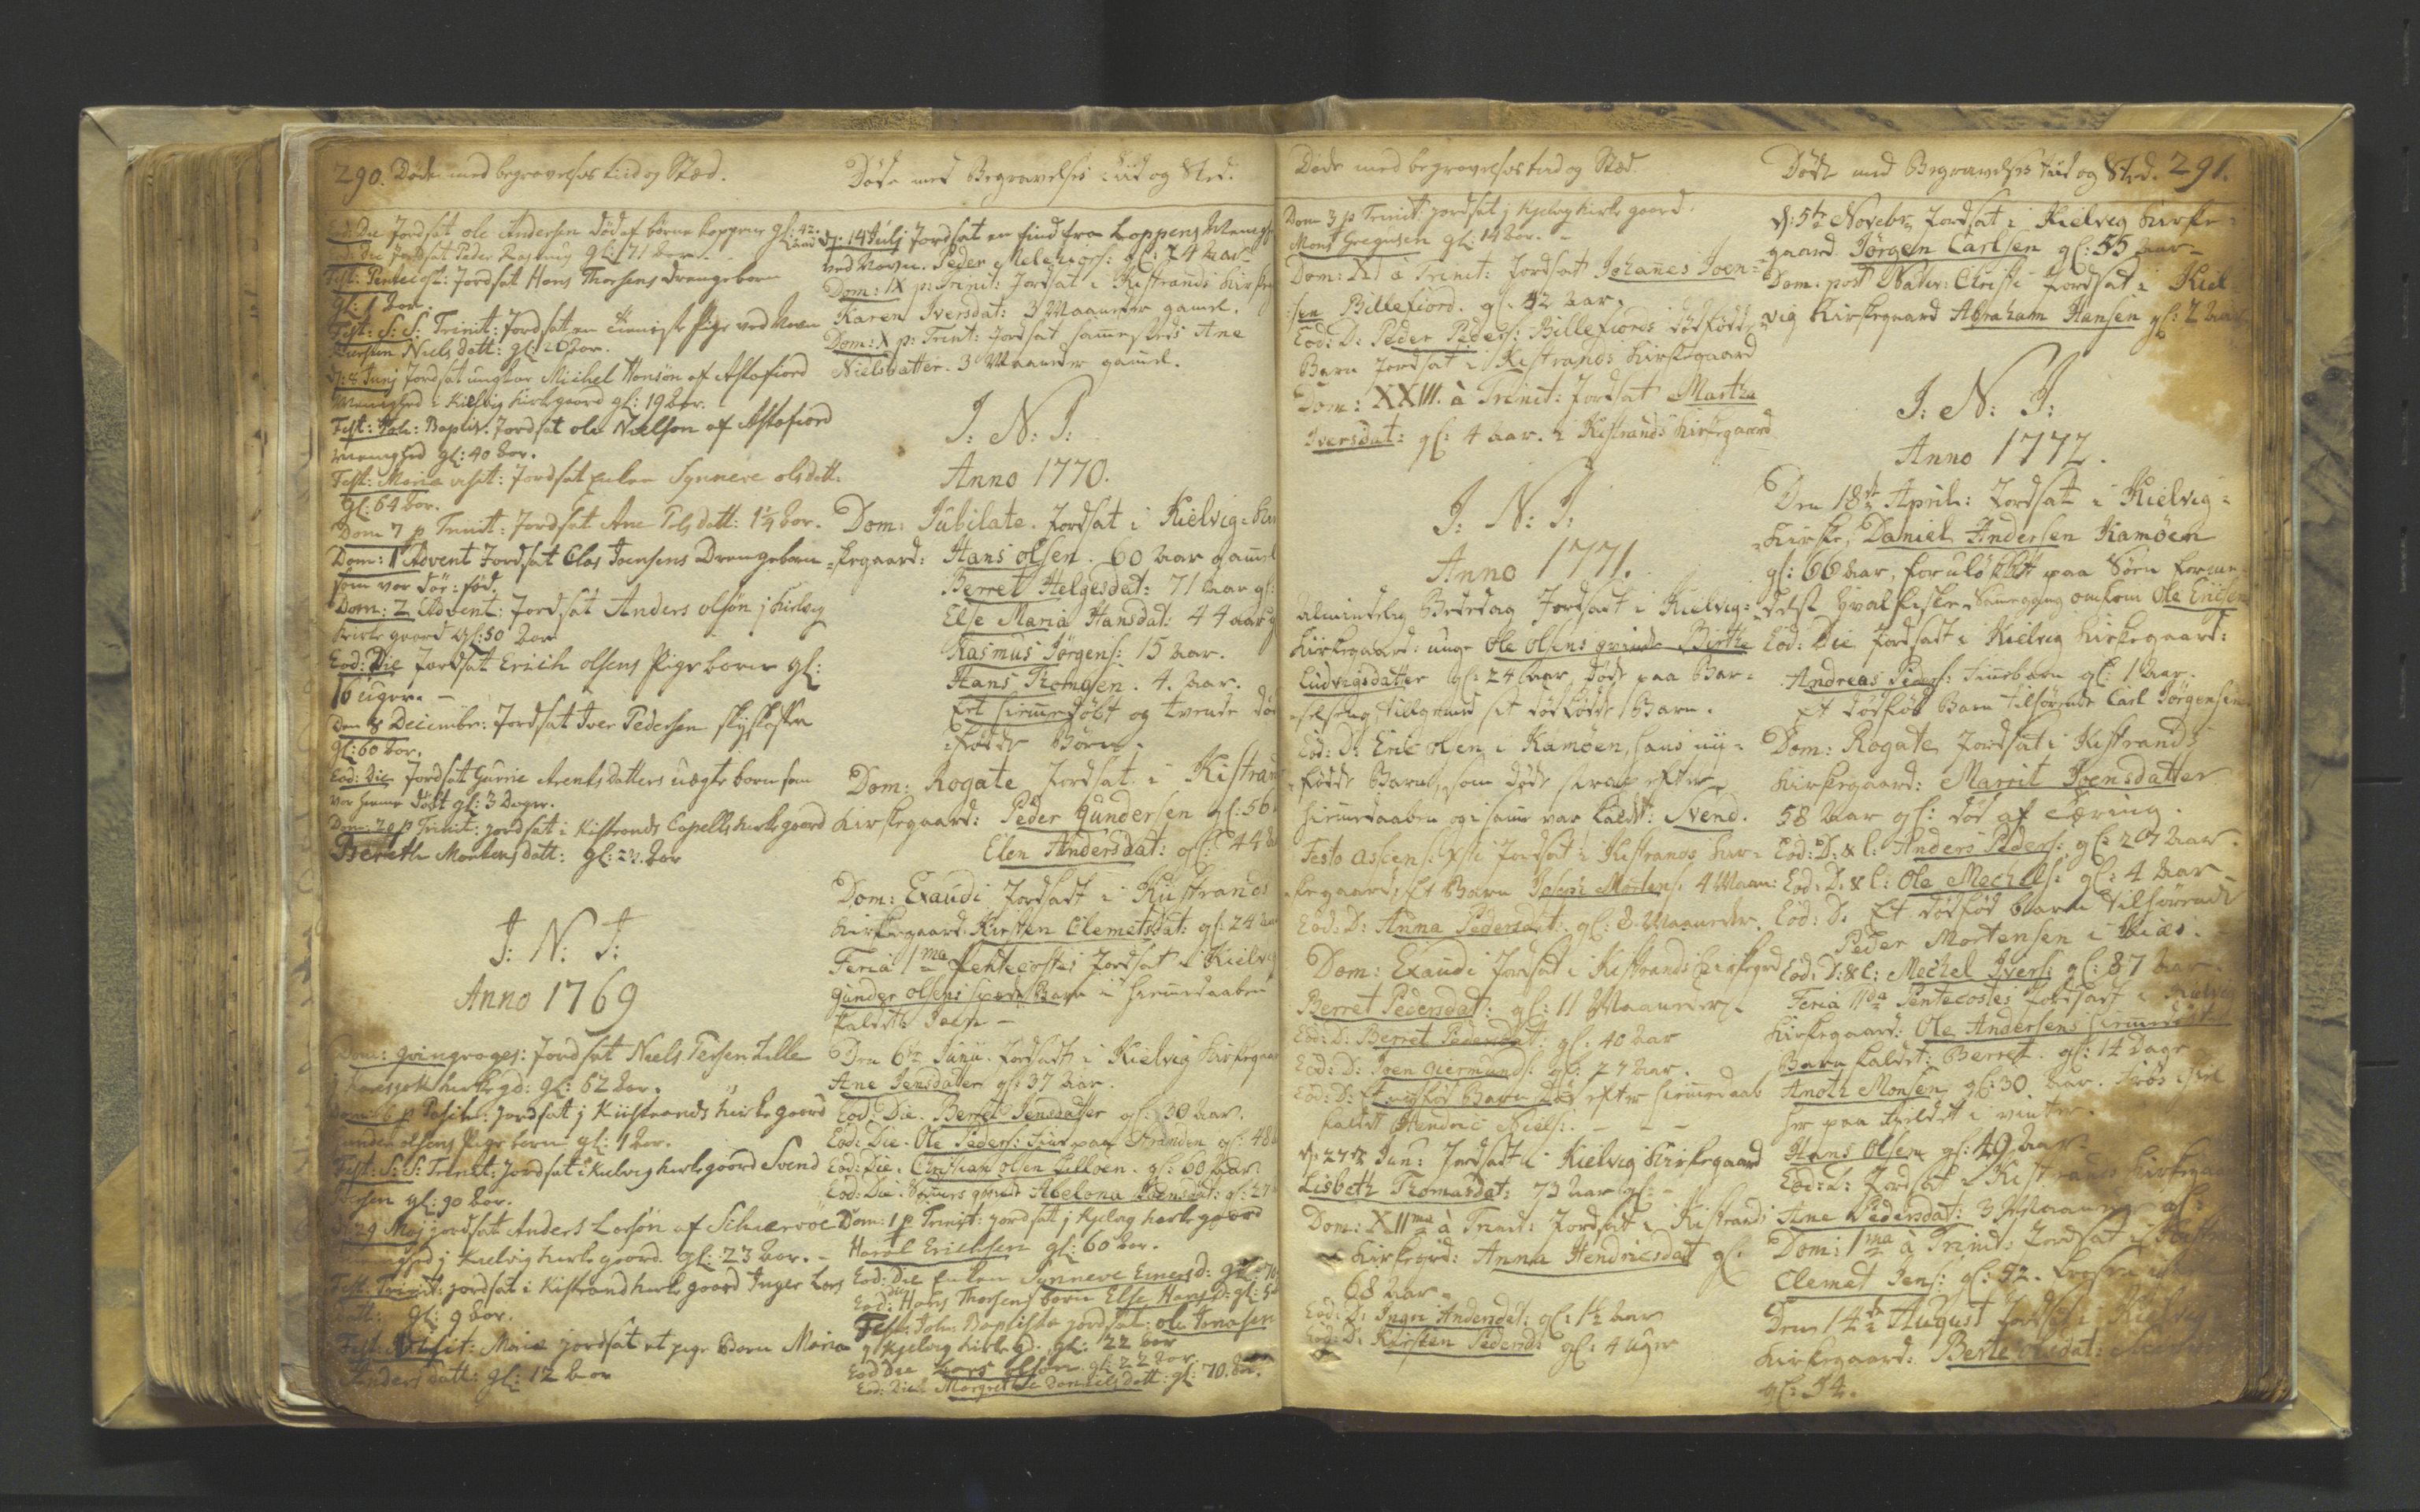 290. Døde med begravelses tiid og Stæd.
Eod: Die Jordsat ole Andersen død af børne kopperne gl: 42.
Eod: Die Jordsat Peder Rasmus gl: 71 aar.
Fest: Pentecost: Jordsat Hans Thorsens drengebarn
gl: 1 aar.
Fest: S: S: Trinit: Jordsat en tieniste Pige ved Navn
Kiersten Niels datt: gl: 20 aar.
d: 8 Junj Jordsat ungkar Michel Honsøn af Altefiord
Menighed i Kielvig kirkegaard gl: 19 aar.
Fest: Joh: Baptist. Jordsat ole Nielsen af Altefiord
menighed gl: 40 aar.
Fest: Mariæ visit: Jordsat Enken Synneve olsdatt.
gl: 64 aar.
Dom 7 p Trinit: Jordsat Ane Polsdatt: 1¼ aar.
Dom: 1 Advent Jordsat Clas Joensens Drengebarn
som var død: fød.
Dom: 2 Advent: Jordsat Anders olsøn j Kielvig
Kirke gaard gl: 50 aar
Eod: Die Jordsatt Erich olsens Pige barn gl:
16 uger. –
Den 8 December: Jordsat Iver Pedersen
gl: 60 aar.
Eod: Die Jordsat Gurine Arentsdatters uægte barn som
var hieme døbt gl: 3 Dager.
Dom: 20 p Trinit: jordsat i Kistrands Capells kirke gaard
Bereth Mortens datt: gl: 22 aar
J: N: J:
Anno 1769
Dom: qvinqvages: Jordsat Niels Persen Lille
j kirke gd: gl: 62 aar.
Dom: 6 p Pasch: Jordsat j Kiistrands kirke gaard
Gunder olsens Pige barn gl: 1 aar.
Fest: S: S: Trinit: Jordsat i Kielvig kirkegaard Svend
gl: 90 aar.
d: 29 Maj jordsat Anders Larsøn af Schiervöe
menighed j Kielvig kirke gaard. gl: 23 aar. –
Fest: Trinit: jordsat i Kistrand kirke gaard Inger Lars
datt: gl: 9 aar.
Fest: Visit: Mariæ jordsat et pige Barn Maria
Anders datt: gl: 12 aar
Døde med Begravelses tiid og Sted.
d: 14 Julj Jordsat en find fra Loppens Menigh
ved Navn. Peder Melchiors: gl: 74 aar
Dom: IX p: Trinit: Jordsat i Kistrands Kirke
Karen Iversdat: 3 Maaneder gamel.
Dom: X p: Trinit: Jordsat sammesteds Ane
Nielsdatter. 3 Maaneder gamel.
J: N: J:
Anno 1770.
Dom: Jubilate. Jordsat i Kielvig= Kir
=kegaard: Hans olsen. 60 Aar gamel
Berret Helgesdat: 71 Aar gl:
Else Maria Hansdat: 44 aar g
Rasmus Jørgens: 15 Aar.
Hans Thomsen. 4. Aar.
Eet hiemedøbt og tvende død
=fødde Børn.
Dom: Rogate Jordsat i Kistrand
Kirkegaard: Peder Gundersen gl: 56
Elen Andersdat: gl: 44 aa
Dom: Exaudi Jordsatt i Kiistrands
Kirkegaard: Kirsten Clemetsdat: gl: 24 aar
Feria 1ma Pentecostes Jordsat i Kielvig
Gunder olsens spæde Barn i hiemedaaben
kaldet: –
Den 6te Junii. Jordsatt i Kielvig Kirkegaar
Ane Jensdatter gl: 37 Aar.
Eod: Die. Berret Jensdatter gl: 30 Aar.
Eod: Die. Ole Peders: Find paa Stranden gl: 48
Eod: Die. Christian olsen. gl: 60 Aar.
Eod: Die qvinde Abelona dat: gl: 27
Dom: 1 p Trinit: jordsatt j Kjelvig kirke gaard
Harol Erichsen gl: 60 aar.
Eod: Die Enken Synneve Einersd: gl: 70
Eod: die Hans Thorsens barn Else Hans D: gl: 5
Fest: Joh: Baptistæ jordsat: ole
j Kjelvig kirke gd. gl: 22 aar
Eod Die Lars olsøn gl: 22 aar
Eod: Die Margrethe Danielsdatt: gl: 70. aar.
Døde med begravelses tiid og Stæd.
Dom 3 p Trinit: jordsat j Kjelvig kirke gaard.
Mons Gregusen gl: 14 aar. –
Dom: XI à Trinit: Jordsat Johanes Joen=
=sen Billefiord. gl: 42 aar.
Eod: D: Peder Peders: Billefiords dødfødde
Barn Jordsat i Kistrands Kirkegaard
Dom: XXIII. à Trinit: Jordsat Martha
Iversdat: gl: 4 aar. i Kistrands Kirkegaard
J: N: J:
Anno 1771.
Almindelig Bededag Jordsatt i Kielvig=
Kirkegaard: unge Ole Olsens qvinde Birthe
Ludvigsdatter gl: 24 Aar, døde paa Bar=
=selseng, tilligemed sit dødfødde Barn.
Eod: D: Eric olen i Kamøen, hans nÿ=
=fødde Barn, som døde strax efter
hiemedaaben og i same var kaldet: Svend.
Festo Ascens: Xsti Jordsat i Kistrands Kir=
=kegaard: Et Barn Mortens: 4 Maan:
Eod: D: Anna Pedersdat: gl: 8 Maaneder.
Dom: Exaudi Jordsat i Kistrands Kirkegrd
Berret Pedersdat: gl: 11 Maaneder.
Eod: D: Berret Pedersdat: gl: 40 Aar
Eod: D: Joen Giermunds: gl: 27 Aar.
Eod: D: Et nyfød Barn død efter hiemedaab
kaldet Hendric Niels: – – –
d: 27de Jun: Jordsatt i Kielvig Kirkegaard
Lisbeth Thomasdat: 73 Aar gl: –
Dom: XIIma à Trinit: Jordsat i Kistrands
Kirkegrd: Anna Hendricsdatt gl:
68 Aar –
Eod: D: Ingri Andersdat: gl: 1½ Aar
Eod: D: Kirsten Pedersd: gl: 4 uger
Døde med Begravelses tiid og Sted. 291.
d: 5te Novebr. Jordsat i Kielvig Kirke=
=gaard Jørgen Carlsen gl: 55 Aar –
Dom: post Nativ: Christi Jordsat i Kiel
vig Kirkegaard Abraham Hansen gl: 2 Aar
J: N: J:
Anno 1772.
Den 18de April: Jordsat i Kielvig=
=Kirke, Daniel Andersen Kamøen
gl: 66 Aar, paa Søen
Hvalfiske omkom Ole Ericsen
Eod: Die Jordsatt i Kielvig Kirkegaard:
Andreas Peders: Finnebarn gl: 1 Aar.
Et dødfød Barn tilhørende Carl Jørgensen
Dom: Rogate Jordsat i Kistrands
Kirkegaard: Marrit Joensdatter
58 Aar gl: død af tæring.
Eod: D: & l: Anders Peders: gl: 20 Aar.
Eod: D: & l: Ole Mechels: gl: 4 Aar –
Eod: D: Et dødfød barn tilhørende
Peder Mortensen i
Eod: D: & l: Mechel Ivers: gl: 87 Aar.
Feria IIda Pentecostes Jordsatt i Kielvig
Kirkegaard: Ole Andersens hiemedøbte
Barn kaldet: Berret. gl: 14 Dage
Anoth Monsen gl: 30. Aar. frøs ihiel
her paa fieldet i vinter.
Hans Olsen gl: 49 Aar –
Eod: D: Jordsat i Kistrands Kirkegaa
Ane Pedersdat: 3 Maaneder gl:
Dom: 1ma à Trinit: Jordsat i Kistra
Clemet Jens: gl: 52.
Den 14de August Jordsat i Kielvig
Kirkegaard: Berte olsdat:
gl: 54.